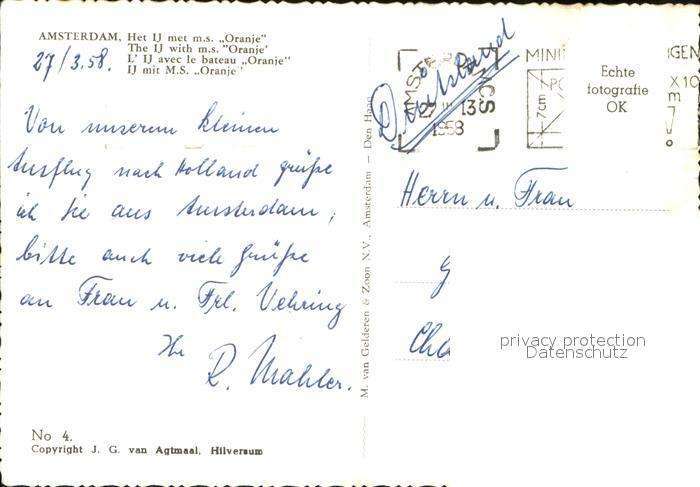 AMSTERDAM, Het IJ met m.s. „Oranje"
The IJ with m.s. "Oranje'
L' IJ avec le bateau „Oranje"
IJ mit M.S. „Oranje"
27/3.58.
Von unserem kleinen
Ausflug nach Holland grüße
ich Sie aus Amsterdam,
bitte auch viele Grüße
an Frau u. Frl. Vehring
Ihr
R. Mahler.
No 4.
Copyright J. G. van Agtmaal, Hilversum
M. van Gelderen & Zoon N.V., Amsterdam — Den Haag
Deutschland
AMSTERDAM
13
1958
MINI
GEN
PO
X 10
7cm
m
Echte
fotografie
OK
Herrn u. Frau
G
Cha
privacy protection
Datenschutz